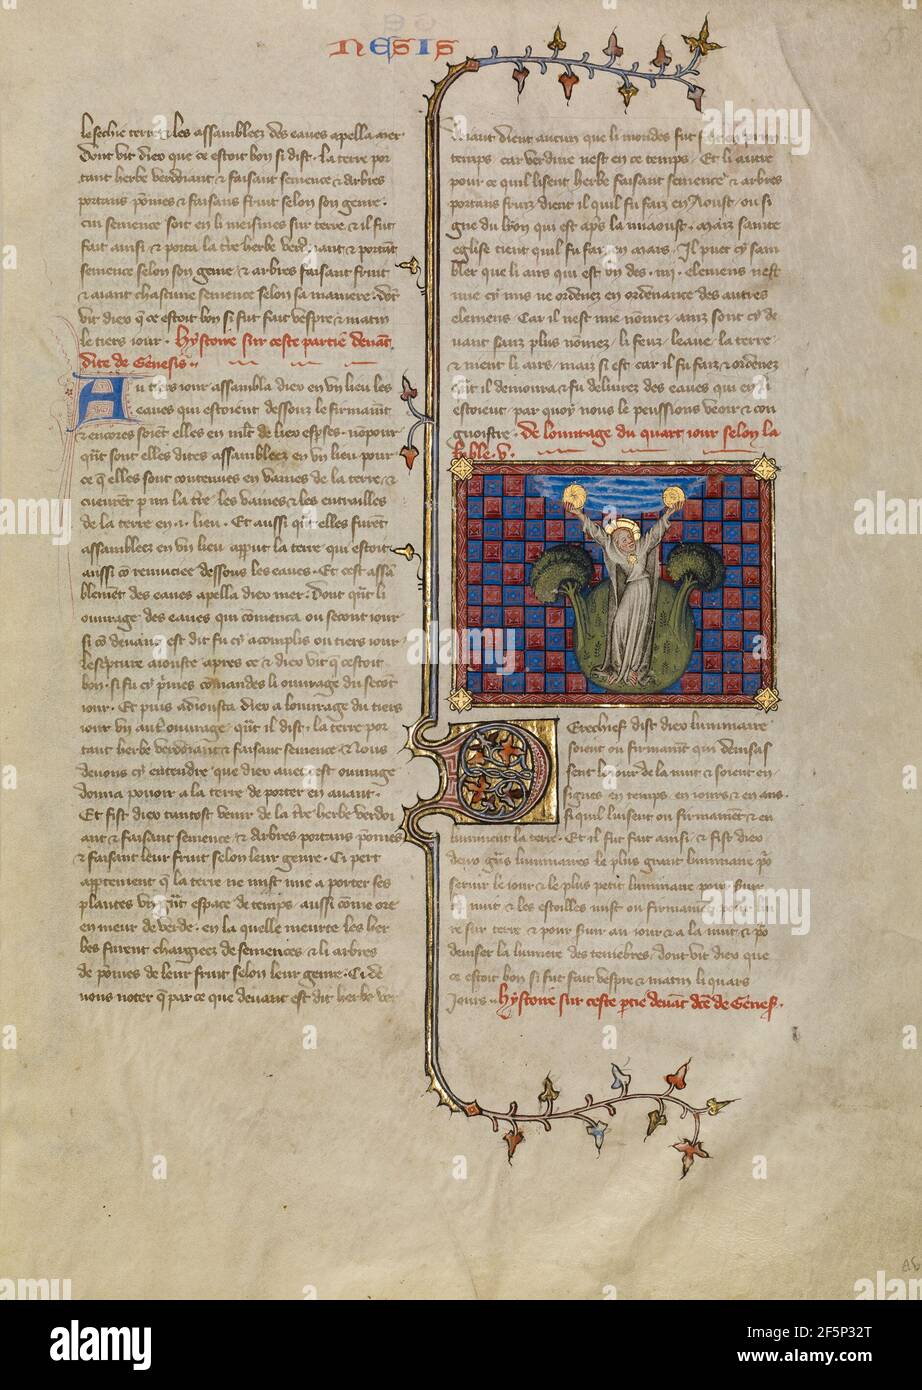 NESIS
le seche terre & les assambleez des eaues apella mer.
Dont vit dieu que ce estoit bon si dist. la terre por
tant herbe verdoiant & faisant semence & arbres
portans pomes & faisans fruit selon son genre.
cui semence soit en li meismes sur terre & il fut
fait ainsi & porta la tre herbe verdoiant & portant
semence selon son genre & arbres faisant fruit
& aiant chascune semence selon sa maniere. dont
vit dieu q ce estoit bon si fut fait vespre & matin
le tiers iour. hystoire sur ceste partie deuant
dite de Genesis.
Au tiers iour assambla dieu en vn lieu les
eaues qui estoient dessouz le firmament
& encores soient elles en mlt de lieu esp̄ses. nonpour
quāt sont elles dites assambleez en vn lieu pour
ce q̄ elles sont contenues en vaines de la terre &
cueurent p mi la tre les vaines & les entrailles
de la terre en .i. lieu. Et aussi q̄t elles furent
assambleez en vn lieu apput la terre qui estoit
aussi cō remuciee dessous les eaues. Et cest assā
blemēt des eaues apella dieu mer. Dont q̄t li
ouurage des eaues qui cōmenca ou secont iour
si cō deuant est dit fu cy acomplis ou tiers iour
lescripture aiouste apres ce & dieu vit q̄ cestoit
bon. si fu cy p̄mes comandes li ouurage du secōt
iour. Et puis adiousta dieu a louurage du tiers
iour vn aut̄ ouurage. q̄t il dist. la terre por
tant herbe verdoiant & faisant semence & Nous
deuons cy entendre que dieu auec est ouurage
donna pouoir a la terre de porter en auant.
Et fist dieu tantost venir de la tre herbe verdoi
ant & faisant semence. & arbres portans pomes
& faisant leur fruit selon leur genre. Ci pert
apptement q̄ la terre ne mist mie a porter ses
plantes vn q̄t espace de temps. aussi cōme ore
en meur de verde. en la quelle meurte les her
bes furent chargiez de semences & li arbres
de pomes de leur fruit selon leur genre. Ci de
uons noter q̄ par ce que deuant est dit herbe ver
doiant dient aucun que li mondes fut fait en prin
temps. car verdure nest en ce temps. Et li autre
pour ce quil lisent herbe faisant semence & arbres
portans fruiz dient il quil fu faiz en Aoust. ou si
gne du lyon qui est ap̄s la miaoust. maiz sainte
eglise tient quil fu faiz en mars. Il puet cy sam
bler que li airs qui est vn des .iiii. elemens nest
mie cy mis ne ordenez en ordenance des autres
elemens. Car il nest mie nōmez. ainz sont cy de
uant sanz plus nōmez. li feuz. leaue. la terre.
& nient li airs. mais si est car il fu faiz & ordenez
q̄t il demoura & fu deliurez des eaues qui en li
estoient. par quoy nous le peussions veoir & con
gnoistre. de louurage du quart iour selon la
bible. v.
Derechief dist dieu luminaire
soient ou firmament qui deuisas
sent le iour de la nuit & soient en
signes en temps. en iours & en ans.
si quil luisent ou firmament & en
luminent la terre. Et il fut fait ainsi. & fist dieu
deux grās luminaires le plus grant luminaire por
seruir le iour & le plus petit luminaire pour seruir
la nuit & les estoilles mist ou firmament pour lui
re sur terre & pour seruir au iour & a la nuit & por
deuiser la lumiere des tenebres. dont vit dieu que
ce estoit bon si fut fait vespre & matin li quars
iours. hystoire sur ceste ptie deuāt dce de Genes̄.
alamy
Image ID: 2F5P32T
www.alamy.com